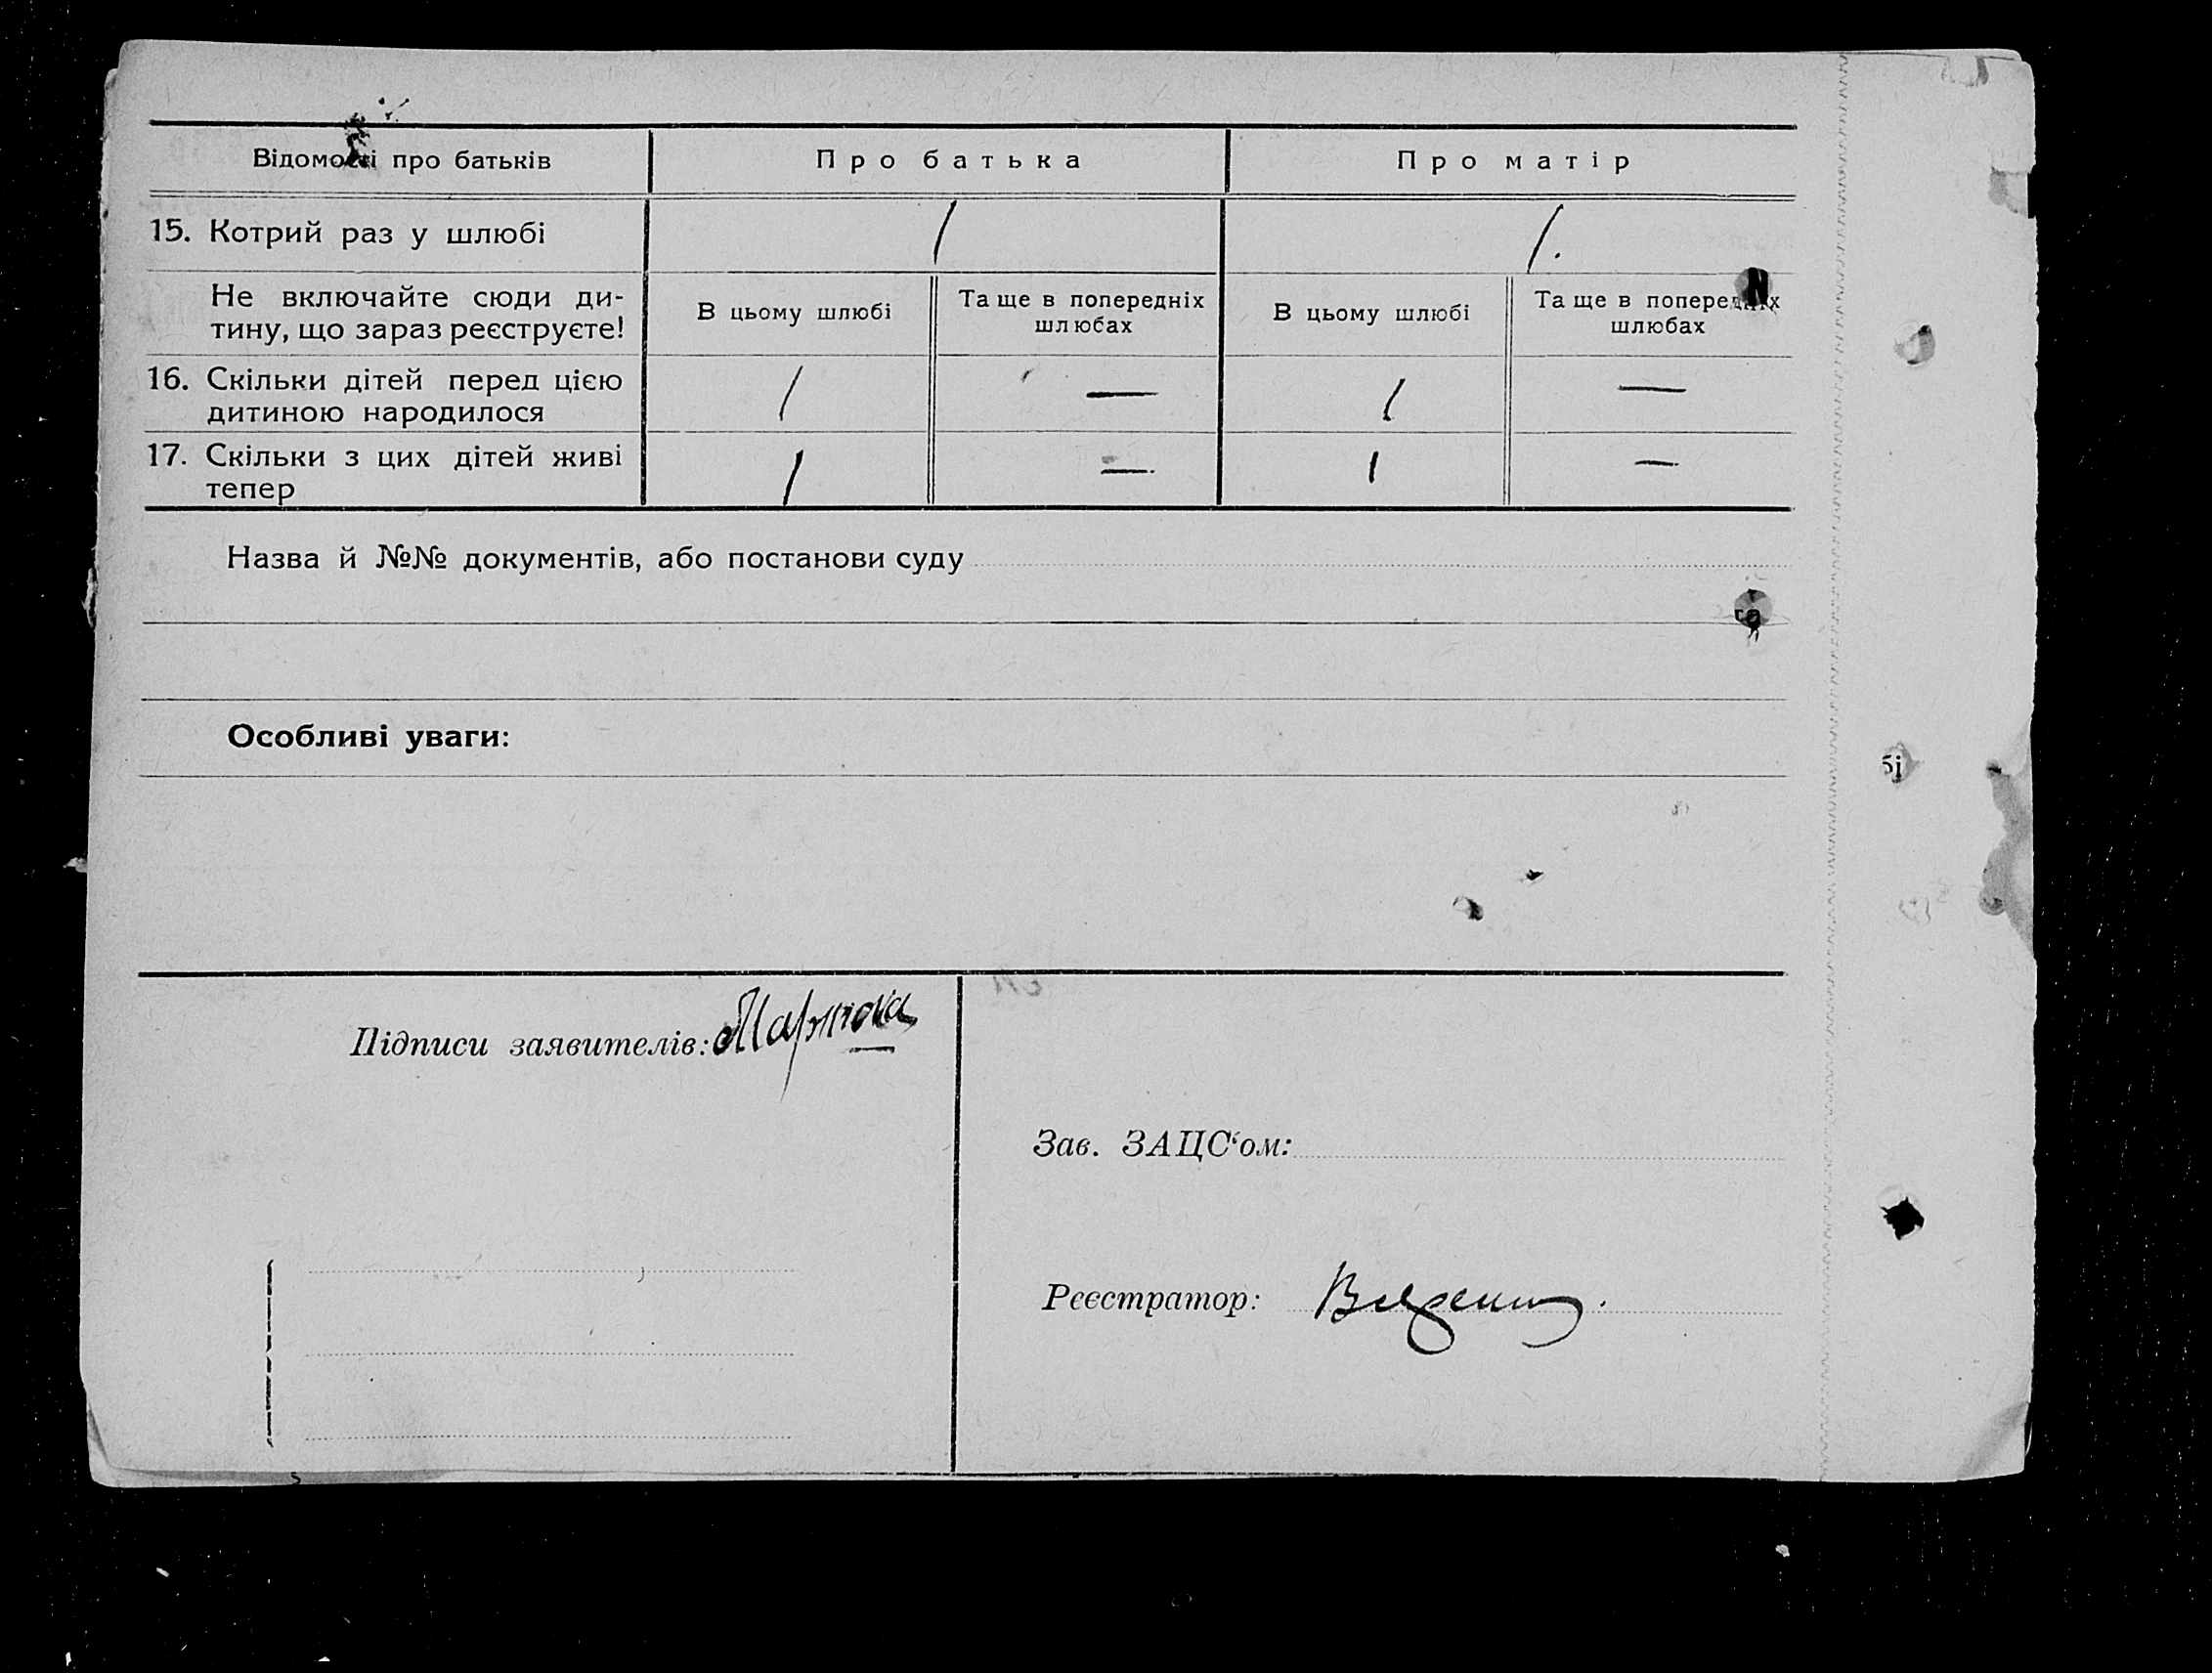 Відомості про батьків
Про батька
Про матір
15. Котрий раз у шлюбі
1
1.
Не включайте сюди ди-
тину, що зараз реєструєте!
В цьому шлюбі
Та ще в попередніх
шлюбах
В цьому шлюбі
Та ще в попередніх
шлюбах
16. Скільки дітей перед цією
дитиною народилося
1
—
1
—
17. Скільки з цих дітей живі
тепер
1
—
1
—
Назва й №№ документів, або постанови суду
Особливі уваги:
Підписи заявителів:
Зав. ЗАЦС‘ом:
Реєстратор: